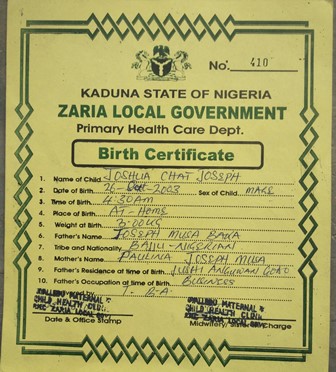 No. 410
KADUNA STATE OF NIGERIA
ZARIA LOCAL GOVERNMENT
Primary Health Care Dept.
Birth Certificate
1. Name of Child JOSHUA CHAT JOSEPH
2. Date of Birth 26-Oct-2003 Sex of Child MALE
3. Time of Birth 4:30AM
4. Place of Birth AT-HOME
5. Weight at Birth 3.00KG
6. Father's Name JOSEPH MUSA
7. Tribe and Nationality BAJJU-NIGERIAN
8. Mother's Name PAULINA JOSEPH MUSA
9. Father's Residence at time of Birth ANGUWAN
10. Father's Occupation at time of Birth BUSINESS
MATERNAL &
CHILD HEALTH CLINIC
ZARIA LOCAL GOVT.
MATERNAL &
CHILD HEALTH CLINIC
ZARIA LOCAL GOVT.
Date & Office Stamp
Midwifery, in Charge